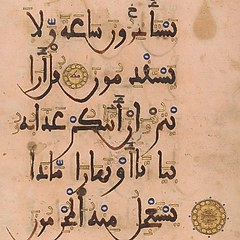 يستأخرون ساعة ولا
يستقدمون قل أرأ
يتم إن أتىكم عذابه
بياتا أو نهارا ماذا
يستعجل منه المجرمون